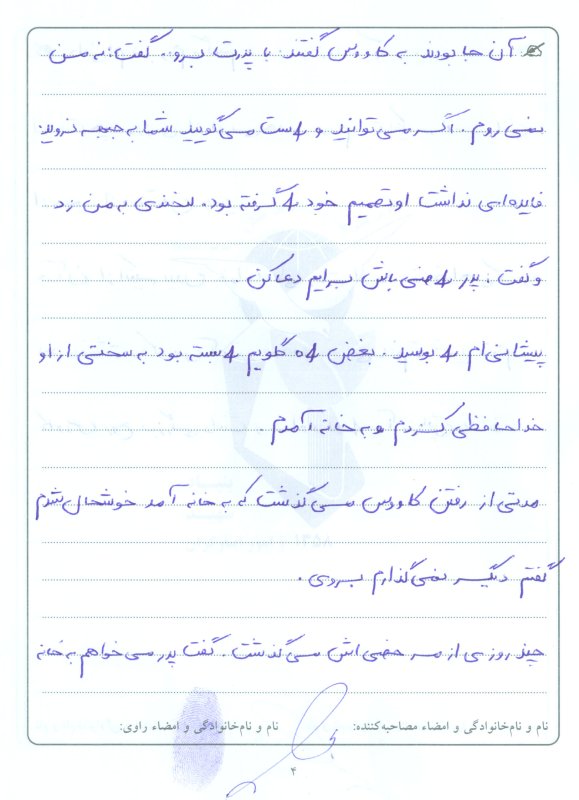 آن جا بودند به کاووس گفتند: با پدرت برو. گفت: نه من
نمی روم. اگر می توانید و راست می گویید شما به جبهه نروید.
فایده ای نداشت او تصمیم خود را گرفته بود. لبخندی به من زد
و گفت: پدر راضی باش برایم دعا کن.
پیشانی ام را بوسید. بغض راه گلویم را بسته بود به سختی از او
خداحافظی کردم و به خانه آمدم.
مدتی از رفتن کاووس می گذشت که به خانه آمد خوشحال شدم
گفتم دیگر نمی گذارم بروی.
چند روزی از مرخصی اش می گذشت. گفت پدر می خواهم به خانه
نام و نام‌خانوادگی و امضاء مصاحبه‌کننده:
نام و نام‌خانوادگی و امضاء راوی:
۴